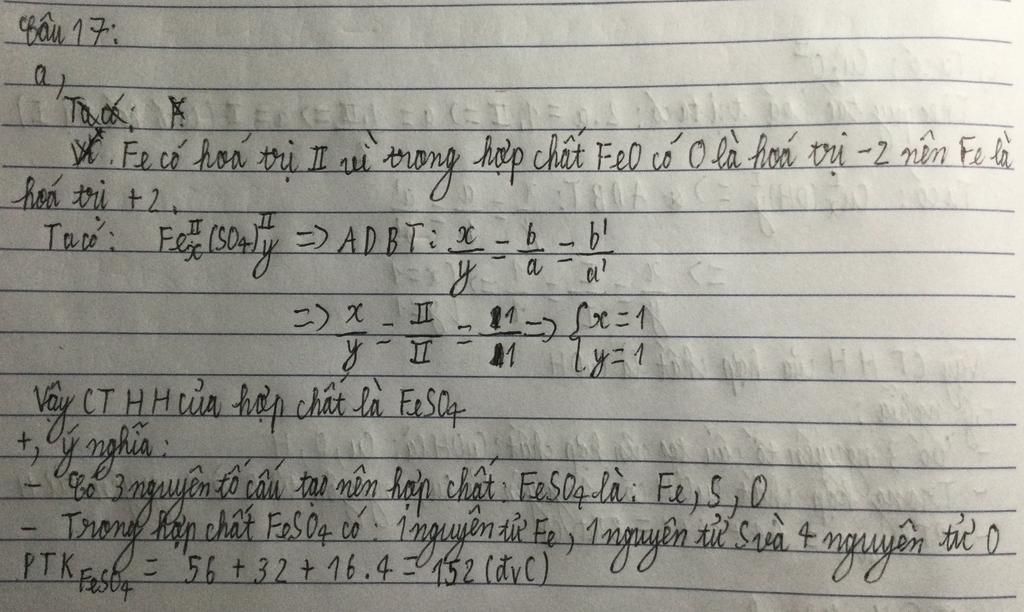 Câu 17:
a,
Ta có:
. Fe có hoá trị II vì trong hợp chất FeO có O là hoá trị -2 nên Fe là
hoá trị +2.
Ta có: Feₓᴵᴵ(SO₄)ᴵᴵy => ADBT: x/y = b/a = b'/a'
=> x/y = II/II = 1/1 => { x = 1
{ y = 1
Vậy CTHH của hợp chất là FeSO₄
+, ý nghĩa:
- Có 3 nguyên tố cấu tạo nên hợp chất: FeSO₄ là: Fe, S, O
- Trong hợp chất FeSO₄ có: 1 nguyên tử Fe, 1 nguyên tử S và 4 nguyên tử O
PTK FeSO₄ = 56 + 32 + 16.4 = 152 (đvC)